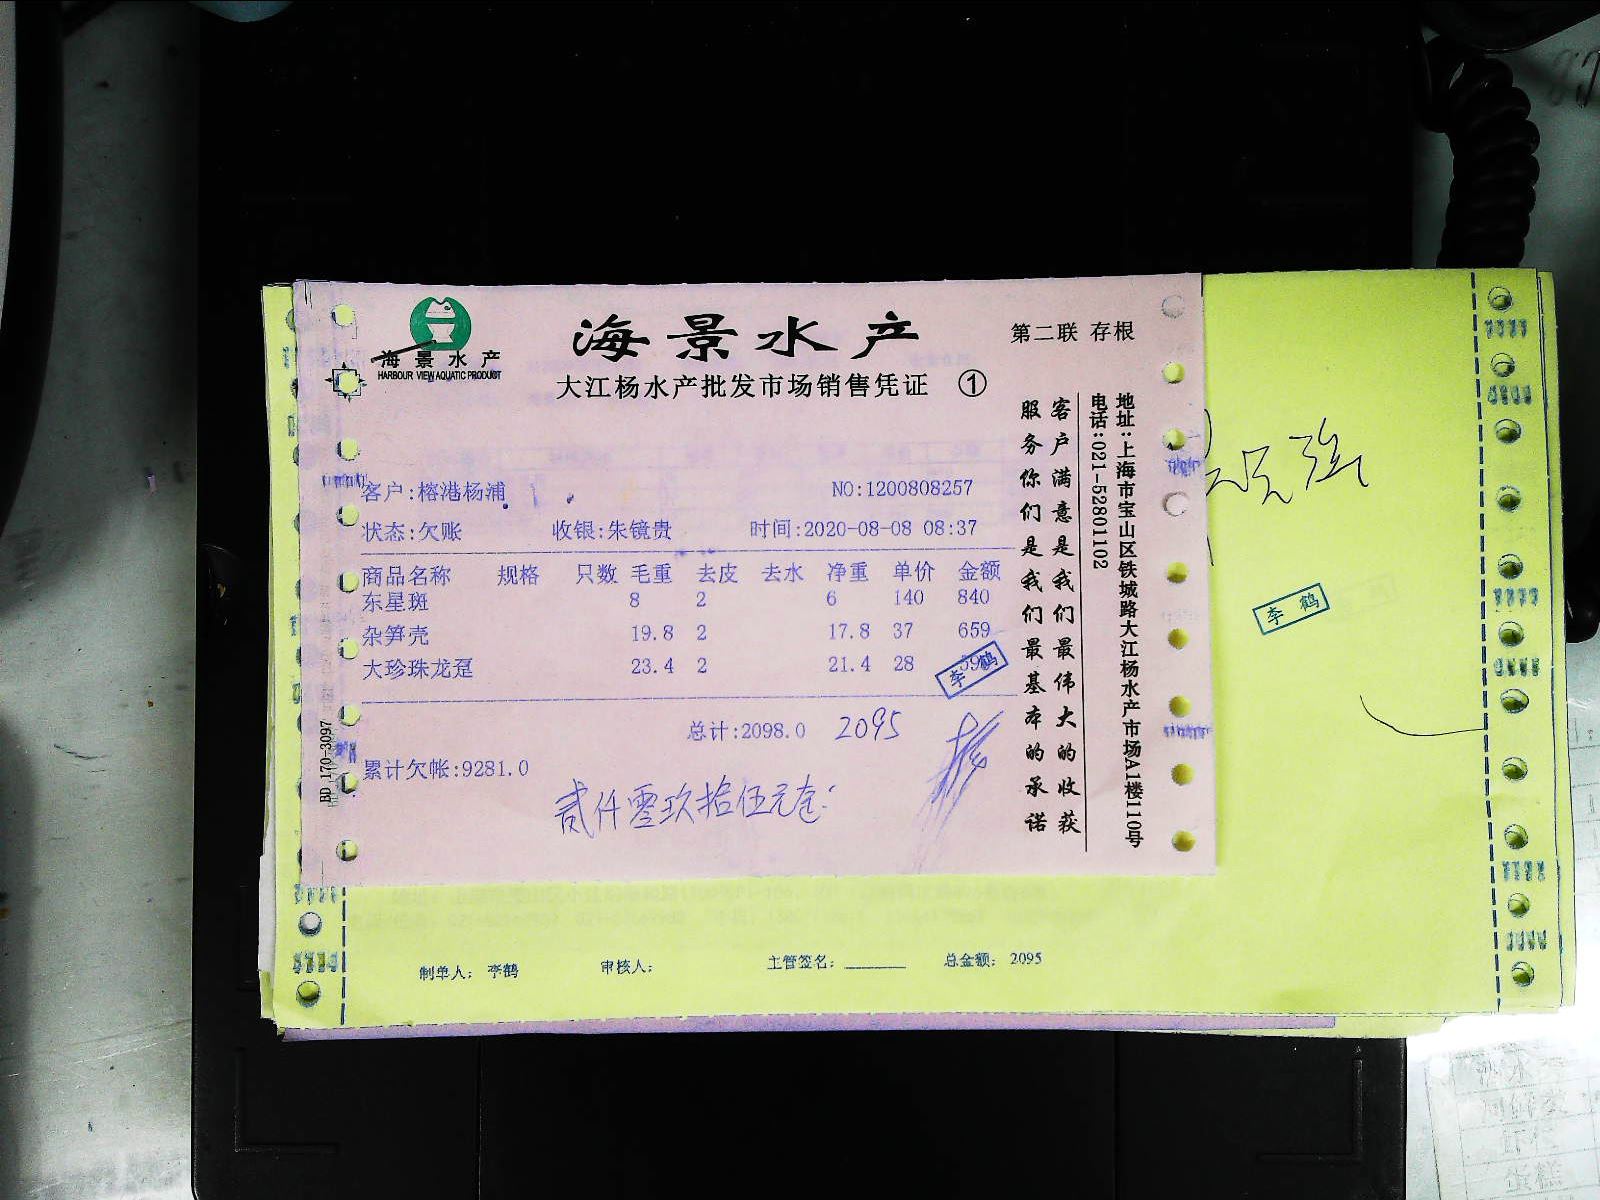 海景水产
HARBOUR VIEW AQUATIC PRODUCT
海景水产
第二联 存根
大江杨水产批发市场销售凭证 ①
客户:榕港杨浦
NO:1200808257
状态:欠账 收银:朱镜贵 时间:2020-08-08 08:37
商品名称 规格 只数 毛重 去皮 去水 净重 单价 金额
东星斑 8 2 6 140 840
杂笋壳 19.8 2 17.8 37 659
大珍珠龙趸 23.4 2 21.4 28
李鹤
总计:2098.0 2095
累计欠帐:9281.0
贰仟零玖拾伍元仓
客户满意是我们最伟大的收获
服务你们是我们最基本的承诺
地址:上海市宝山区铁城路大江杨水产市场A1楼110号
电话:021-52801102
BD 170-3097
李鹤
制单人: 李鹤 审核人: 主管签名: 总金额: 2095